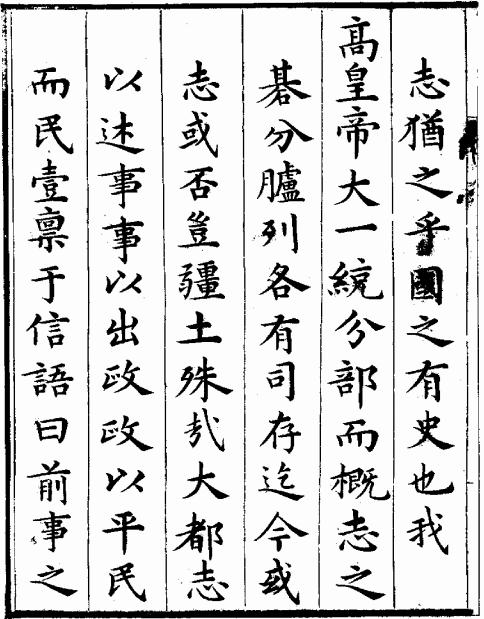 志猶之乎國之有史也我
髙皇帝大一統分部而概志之
碁分臚列各有司存迄今或
志或否豈疆土殊㢤大都志
以述事事以出政政以平民
而民壹禀于信語曰前事之